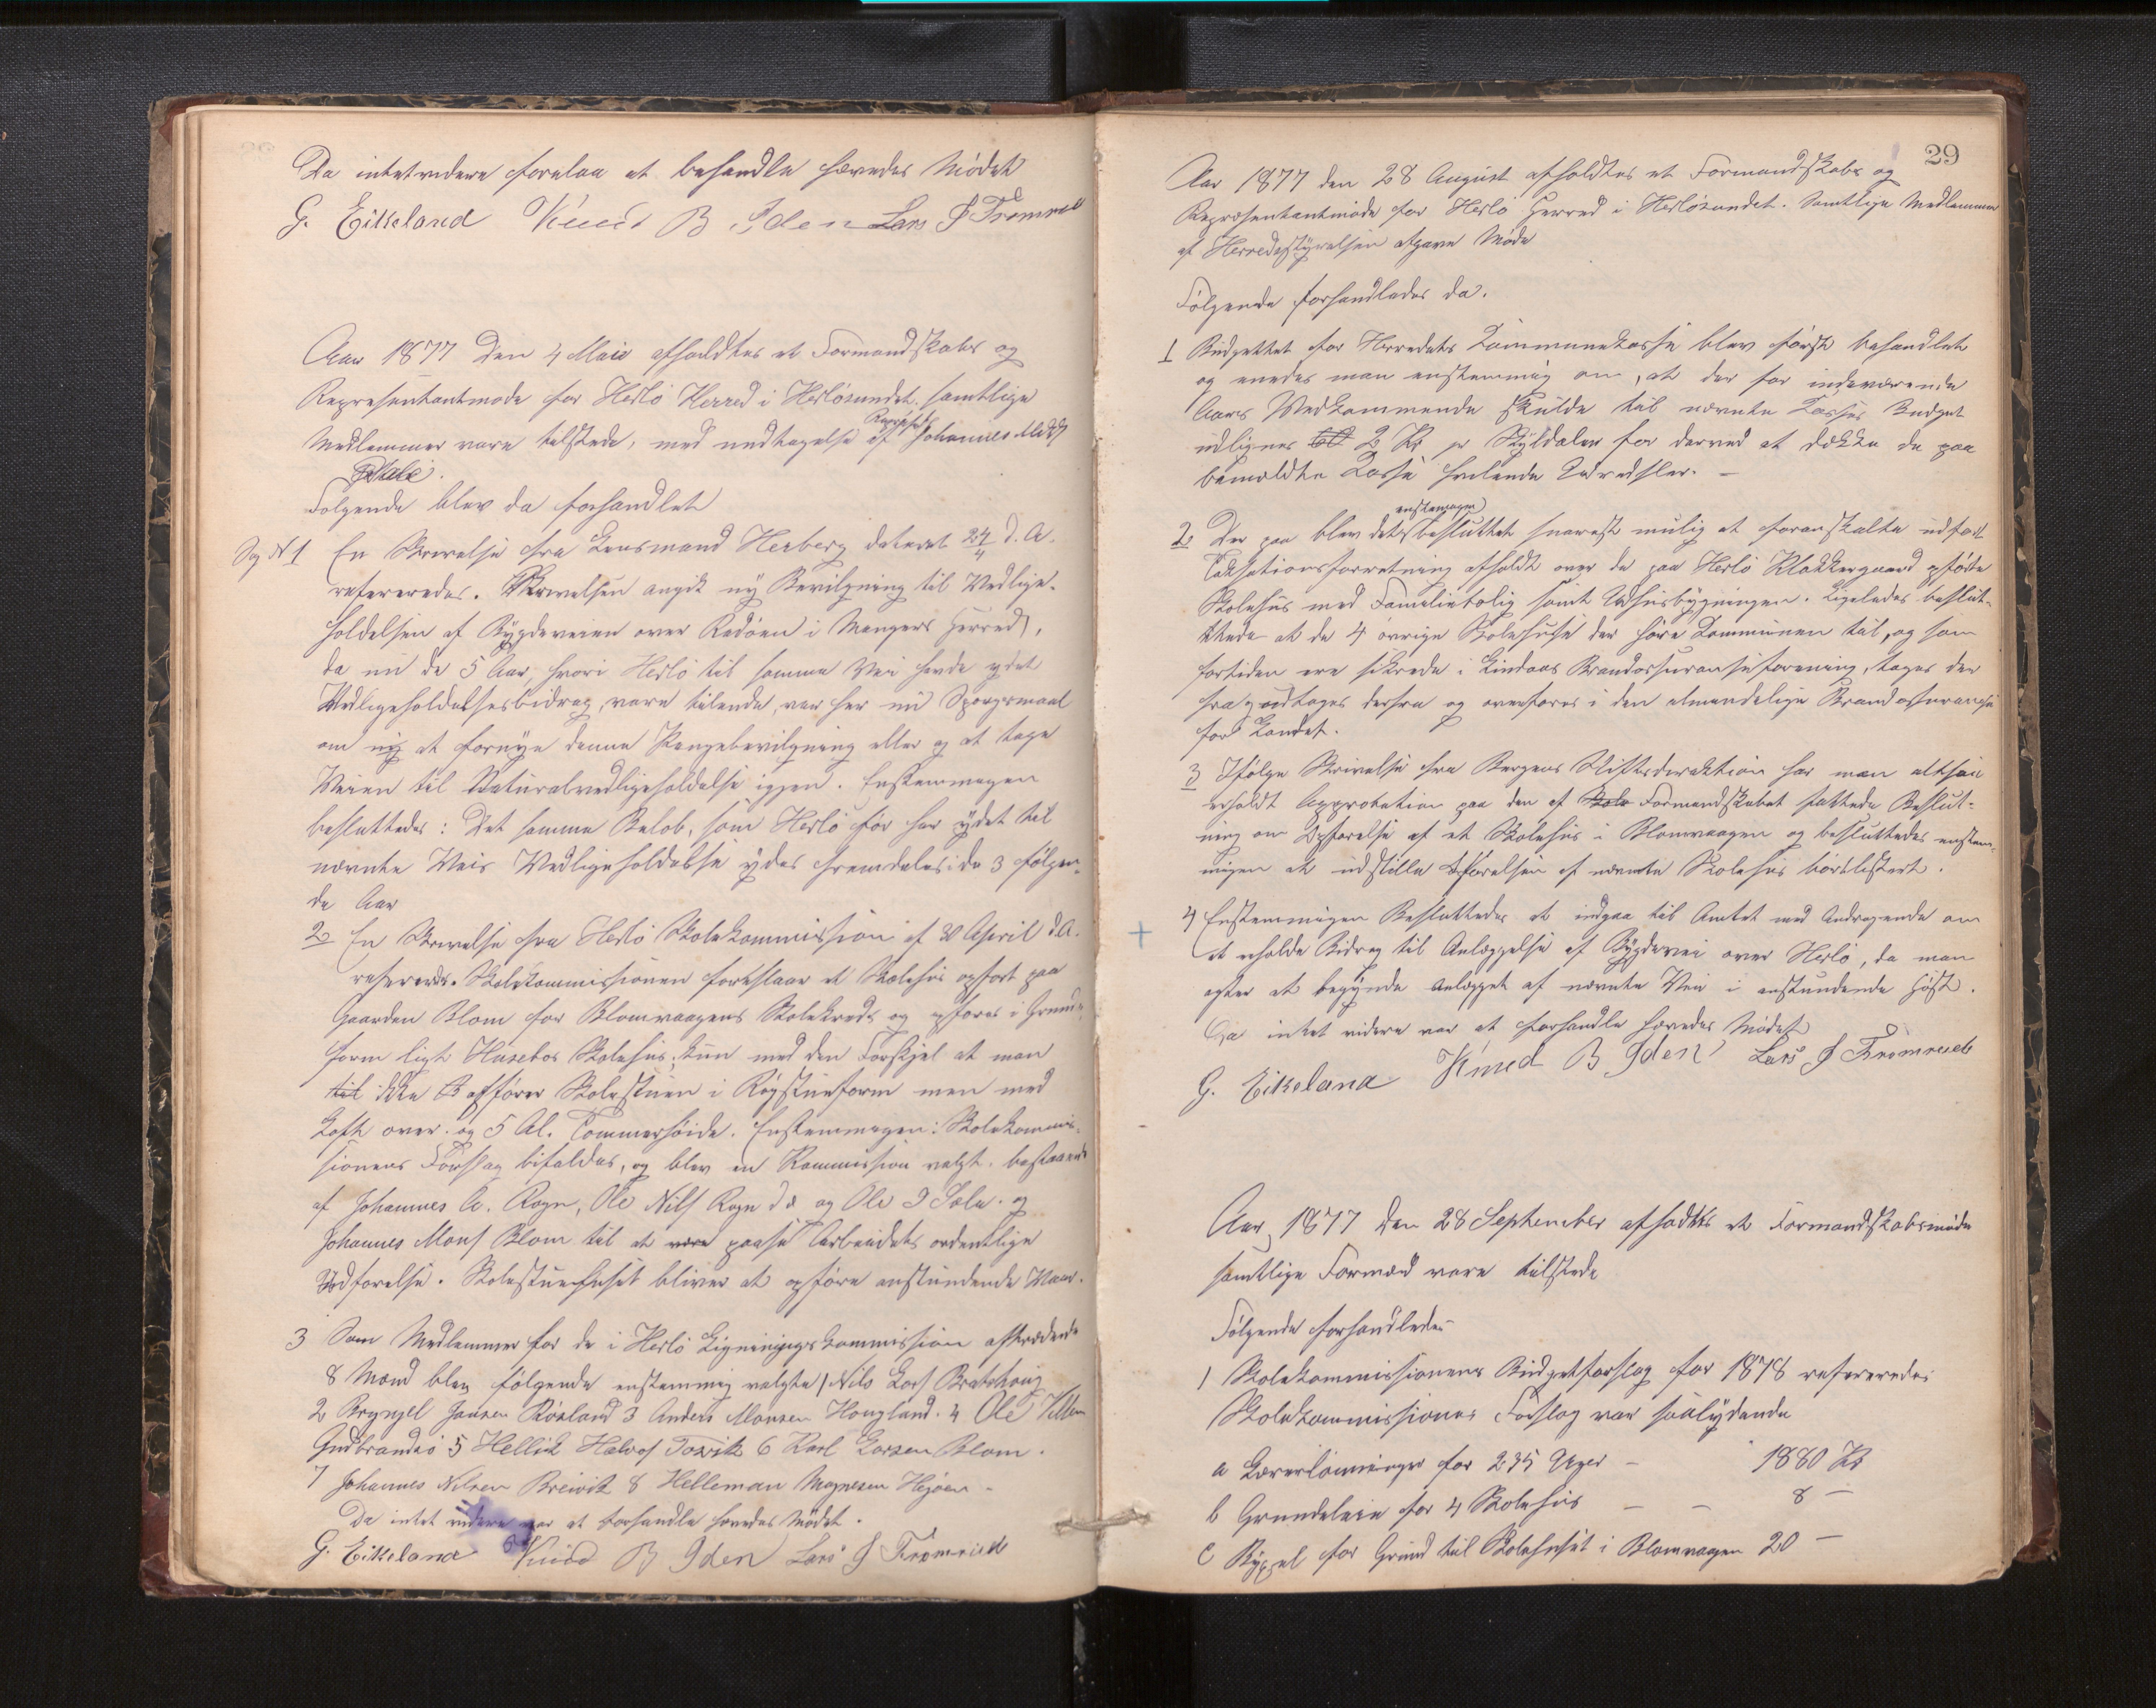 Da intet videre forelaa at behandle hævedes Mödet
G. Eikeland Knud B Iden Lars J Fromreid
Aar 1877 den 4 Maii afholdtes et Formandskabs og
Repræsentantmöde for Herlö Herred i Herlösundet. samtlige
Medlemmer vare tilstede, med undtagelse af Repræsent Johannes
Følgende blev da forhandlet
Sag N 1 En Skrivelse fra Lensmand Herberg dateret 24/4 d. A.
refereredes. Skrivelsen angik ny Bevilgning til Vedlige-
holdelsen af Bygdeveien over Radöen i Mangers Herred,
da nu de 5 Aar, hvori Herlö til samme Vei havde ydet
Vedligeholdelsesbidrag, vare tilende, var her nu Spørgsmaal
om at fornye denne Pengebevilgning eller og at tage
Veien til Naturalvedligeholdelse igjen. Enstemmigen
besluttedes: Det samme Beløb, som Herlö før har ydet til
nævnte Veis Vedligeholdelse ydes fremdeles i de 3 følgen-
de Aar
2 En Skrivelse fra Herlö Skolekommission af 30 April d. A.
refereredes. Skolekommissionen foreslaar et Skolehus opført paa
Gaarden Blom for Blomvaagens Skolekreds og opføres i Grund-
form ligt Husebøs Skolehus, kun med den Forskjel at man
til ikke opfører Skolestuen i Røgstueform men med
Loft over og 5 Al. Tømmerhøide. Enstemmigen: Skolekommis-
sionens Forslag bifaldes, og blev en Kommission valgt. bestaaende
af Johannes A. Rogn, Ole Nils Rogn og Ole I Sæle. og
Johannes Mons Blom til at være paase Arbeidets ordentlige
Udførelse. Skolestuehuset bliver at opføre anstundende Vaar.
3 Som Medlemmer for de i Herlö Ligningskommission aftrædende
8 Mænd blev følgende enstemmig valgte 1 Nils Lars Bratshoug
2 Brynjel Jansen Rösland 3 Anders Monsen Hougland. 4 Ole
Gudbrandsö 5 Hellik Halvos Tosvik 6 Karl Larsen Blom.
7 Johannes Nilsen Breivik 8 Helleman Magnesen Hejöen -
Da intet videre var at forhandle hævedes Mödet.
G. Eikeland Knud B Iden Lars J Fromreid
29
Aar 1877 den 28 August afholdtes et Formandskabs og
Repræsentantmöde for Herlö Herred i Herlösundet. Samtlige Medlemmer
af Herredsstyrelsen afgave Möde
Følgende forhandledes da.
1 Budgettet for Herredets Kommunekasse blev først behandlet
og enedes man enstemmig om, at der for indeværende
Aars Vedkommende skulde til nævnte Kasses Budget
udlignes 2 Kr pr Skyldaler for derved at dække de paa
bemeldte Kasse hvilende Udredsler. -
2 Der paa blev det enstemmigen besluttet snarest mulig at foranstalte udført
Taksationsforretning afholdt over de paa Herlö Klokkergaard opførte
Skolehus med Familiebolig samt Udhusbygningen. Ligeledes beslut-
tedes at de 4 øvrige Skolehuse der høre Kommunen til, og som
fortiden ere sikrede i Lindaas Brandassuranseforening, tages der
fra og udtages derfra og overføres i den almindelige Brandassuranse
for Landet.
3 Ifølge Skrivelse fra Bergens Stiftsdirektion har man altsaa
erholdt Approbation paa den af Skole Formandskabet fattede Beslut-
ning om Opførelse af et Skolehus i Blomvaagen og besluttedes enstem-
migen at udstille Opførelsen af nævnte Skolehus
4 Enstemmigen Besluttedes at indgaa til Amtet med Andragende om
at erholde Bidrag til Anlæggelse af Bygdevei over Herlö, da man
agter at begynde Anlægget af nævnte Vei i anstundende Høst.
Da intet videre var at forhandle hævedes Mödet
G. Eikeland Knud B Iden Lars J Fromreid
Aar 1877 den 28 September afholdtes et Formandskabsmöde
samtlige Formænd vare tilstede
Følgende forhandledes
1 Skolekommissionens Budgetforslag for 1878 refereredes
Skolekommissionens Forslag var saalydende
a Lærerlønninger for 235 Uger - 1880 Kr
b Grundeleie for 4 Skolehus - - 8 -
c Bygsel for Grund til Skolehuset i Blomvaagen 20 -